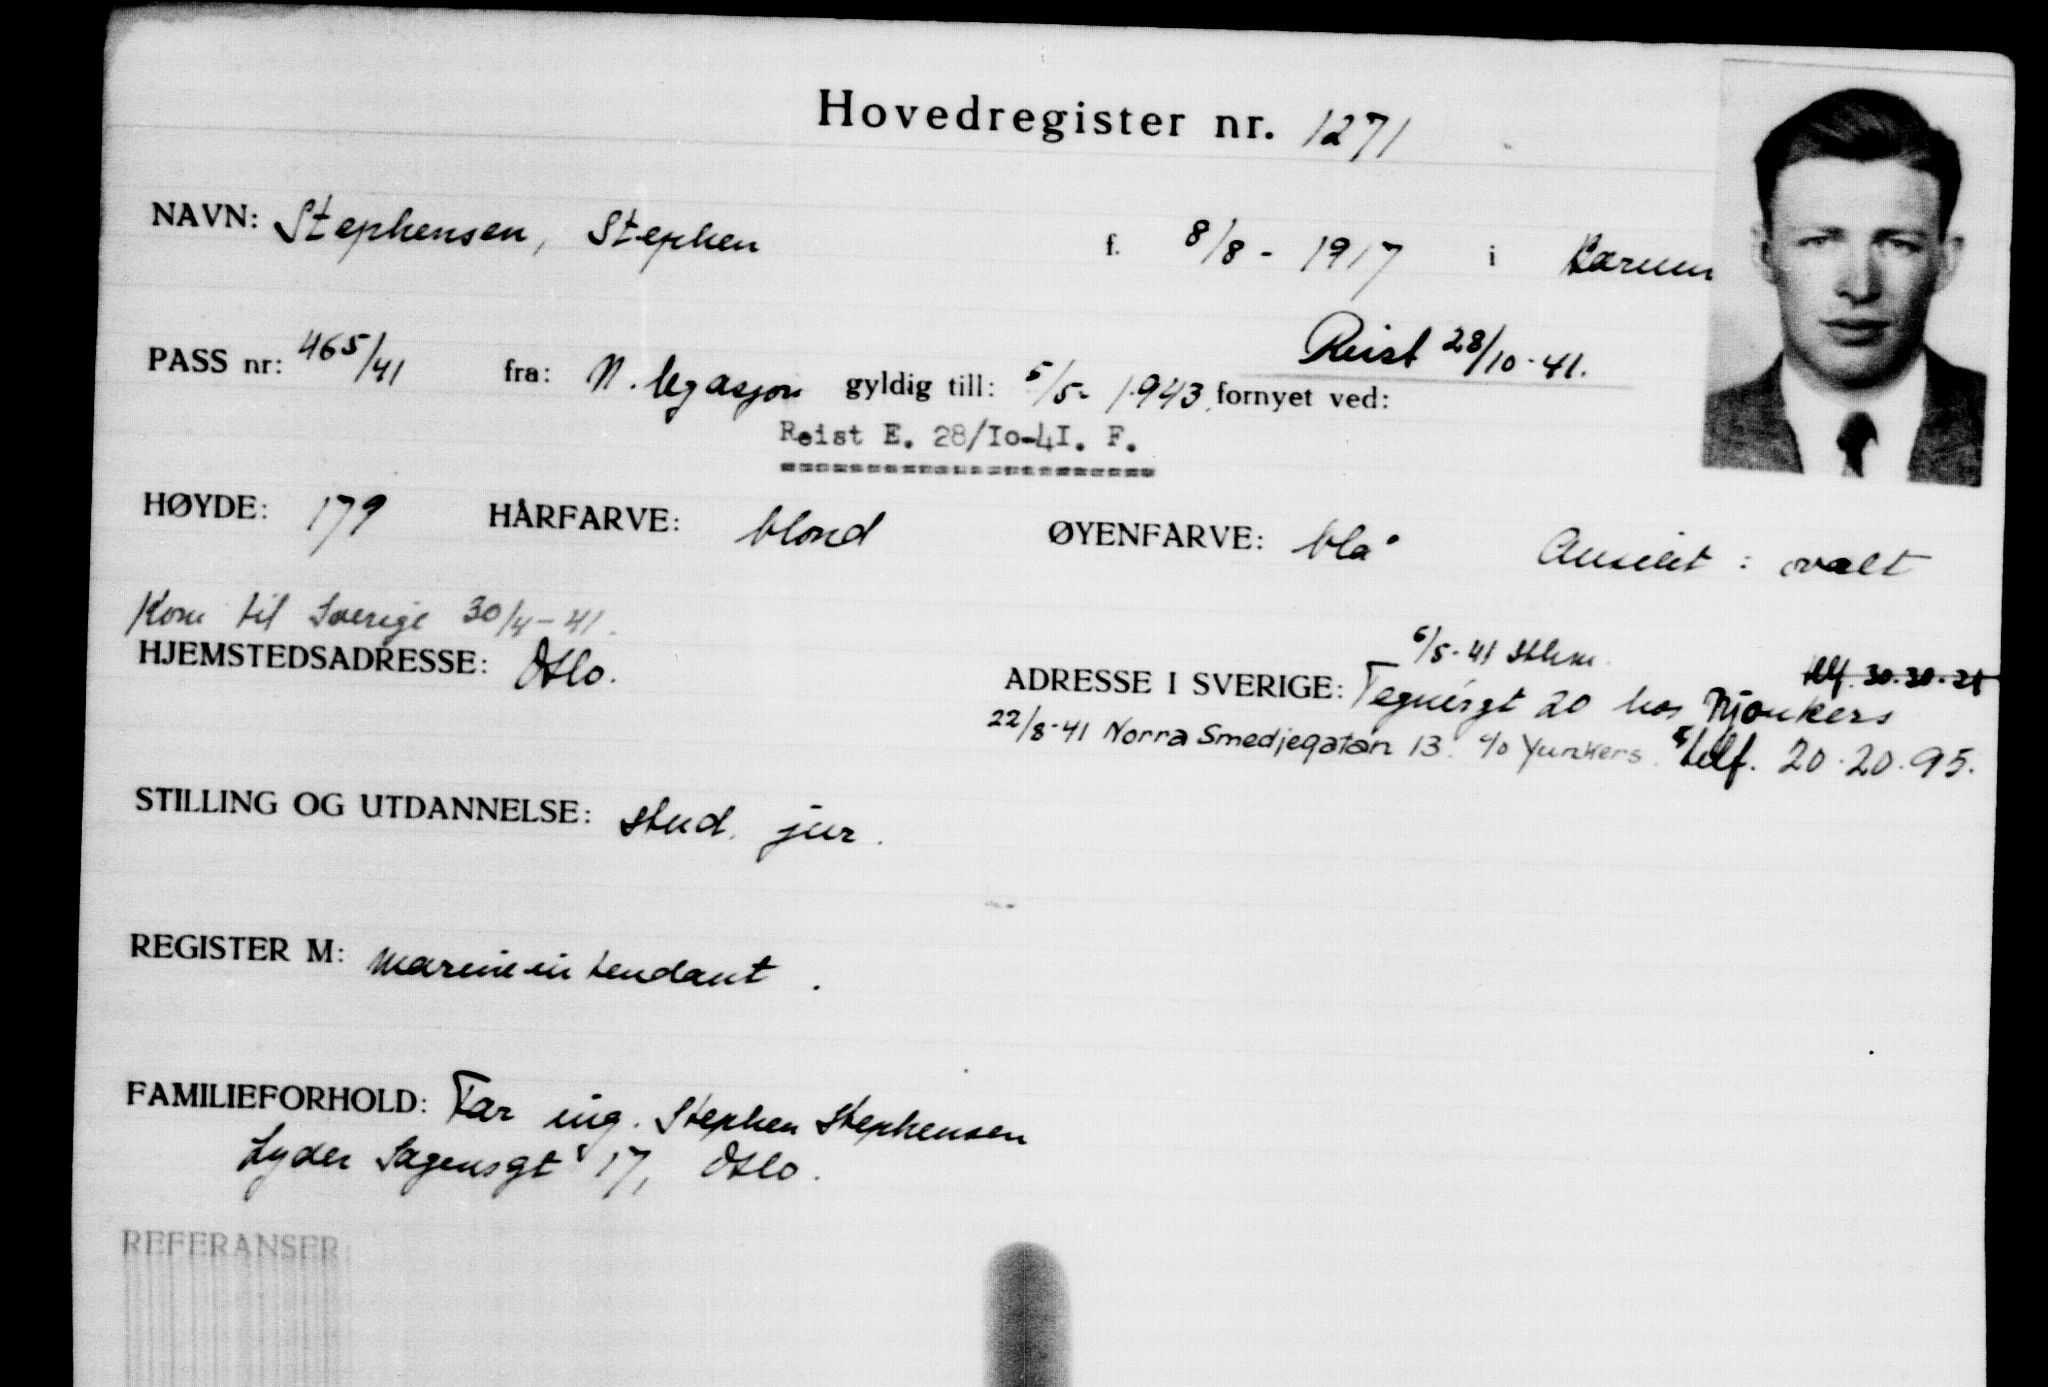 Hovedregister nr. 1271
NAVN: Stephensen, Stephen f. 8/8 - 1917 i Bærum
Reist 28/10-41.
PASS nr: 465/41 fra: N. legasjon gyldig till: 5/5- 1943. fornyet ved:
Reist E. 28/Io-4I. F.
HØYDE: 179 HÅRFARVE: blond ØYENFARVE: blå Ansikt: ovalt
Kom til Sverige 30/4-41.
HJEMSTEDSADRESSE: Oslo.
5/5-41 Sthlm. telf. 30.30.21
ADRESSE I SVERIGE: Tegnérgt 20 hos
22/8-41 Norra Smedjegatan 13. c/o Yunkers. telf. 20.20.95.
STILLING OG UTDANNELSE: stud. jur.
REGISTER M: marineintendant.
FAMILIEFORHOLD: Far ing. Stephen Stephensen
Lyder Sagensgt 17, Oslo.
REFERANSER: